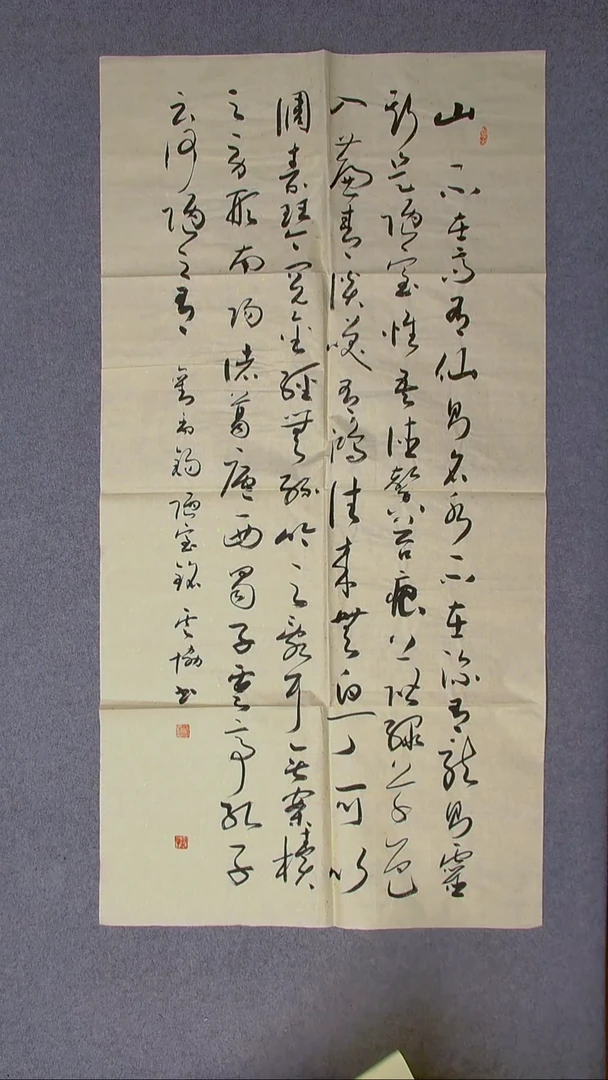 山不在高有仙則名水不在深有龍則靈
斯是陋室惟吾德馨苔痕上階綠草色
入簾青談笑有鴻往來無白丁可以
調素琴閱金經無絲竹之亂耳無案牘
之勞形南陽諸葛廬西蜀子雲亭孔子
云何陋之有 劉禹錫陋室銘 書